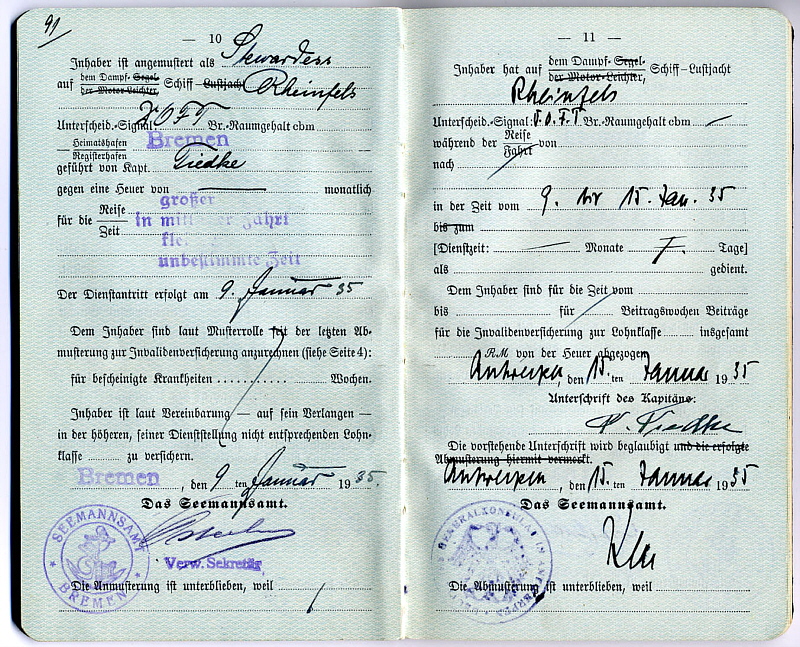 91
— 10 —
Inhaber ist angemustert als Stewardess
auf dem Dampf- Segel- der Motor-Leichter, Schiff-Lustjacht Rheinfels
Unterscheid.-Signal: Br.-Raumgehalt cbm
Heimatshafen Registerhafen Bremen
geführt von Kapt. Tiedke
gegen eine Heuer von monatlich
für die Reise Zeit großer
in mittlerer Fahrt
kle.
unbestimmte Zeit
Der Dienstantritt erfolgt am 9. Januar 35
Dem Inhaber sind laut Musterrolle seit der letzten Ab-
musterung zur Invalidenversicherung anzurechnen (siehe Seite 4):
für bescheinigte Krankheiten .......... Wochen.
Inhaber ist laut Vereinbarung — auf sein Verlangen —
in der höheren, seiner Dienststellung nicht entsprechenden Lohn-
klasse ........ zu versichern.
Bremen, den 9 ten Januar 1935.
Das Seemannsamt.
SEEMANNSAMT BREMEN
Verw. Sekretär
Die Anmusterung ist unterblieben, weil
— 11 —
Inhaber hat auf dem Dampf- Segel- der Motor-Leichter, Schiff-Lustjacht
Rheinfels
Unterscheid.-Signal: Br.-Raumgehalt cbm
während der Reise Fahrt von
nach
in der Zeit vom 9. bis 15. Jan. 35
bis zum
[Dienstzeit: — Monate 7. Tage]
als gedient.
Dem Inhaber sind für die Zeit vom
bis für Beitragswochen Beiträge
für die Invalidenversicherung zur Lohnklasse insgesamt
RM von der Heuer abgezogen.
Antwerpen, den 15. ten Januar 1935
Unterschrift des Kapitäns:
Tiedke
Die vorstehende Unterschrift wird beglaubigt und die erfolgte
Abmusterung hiermit vermerkt.
Antwerpen, den 15. ten Januar 1935
Das Seemannsamt.
GENERALKONSULAT IN ANTWERPEN
Die Abmusterung ist unterblieben, weil